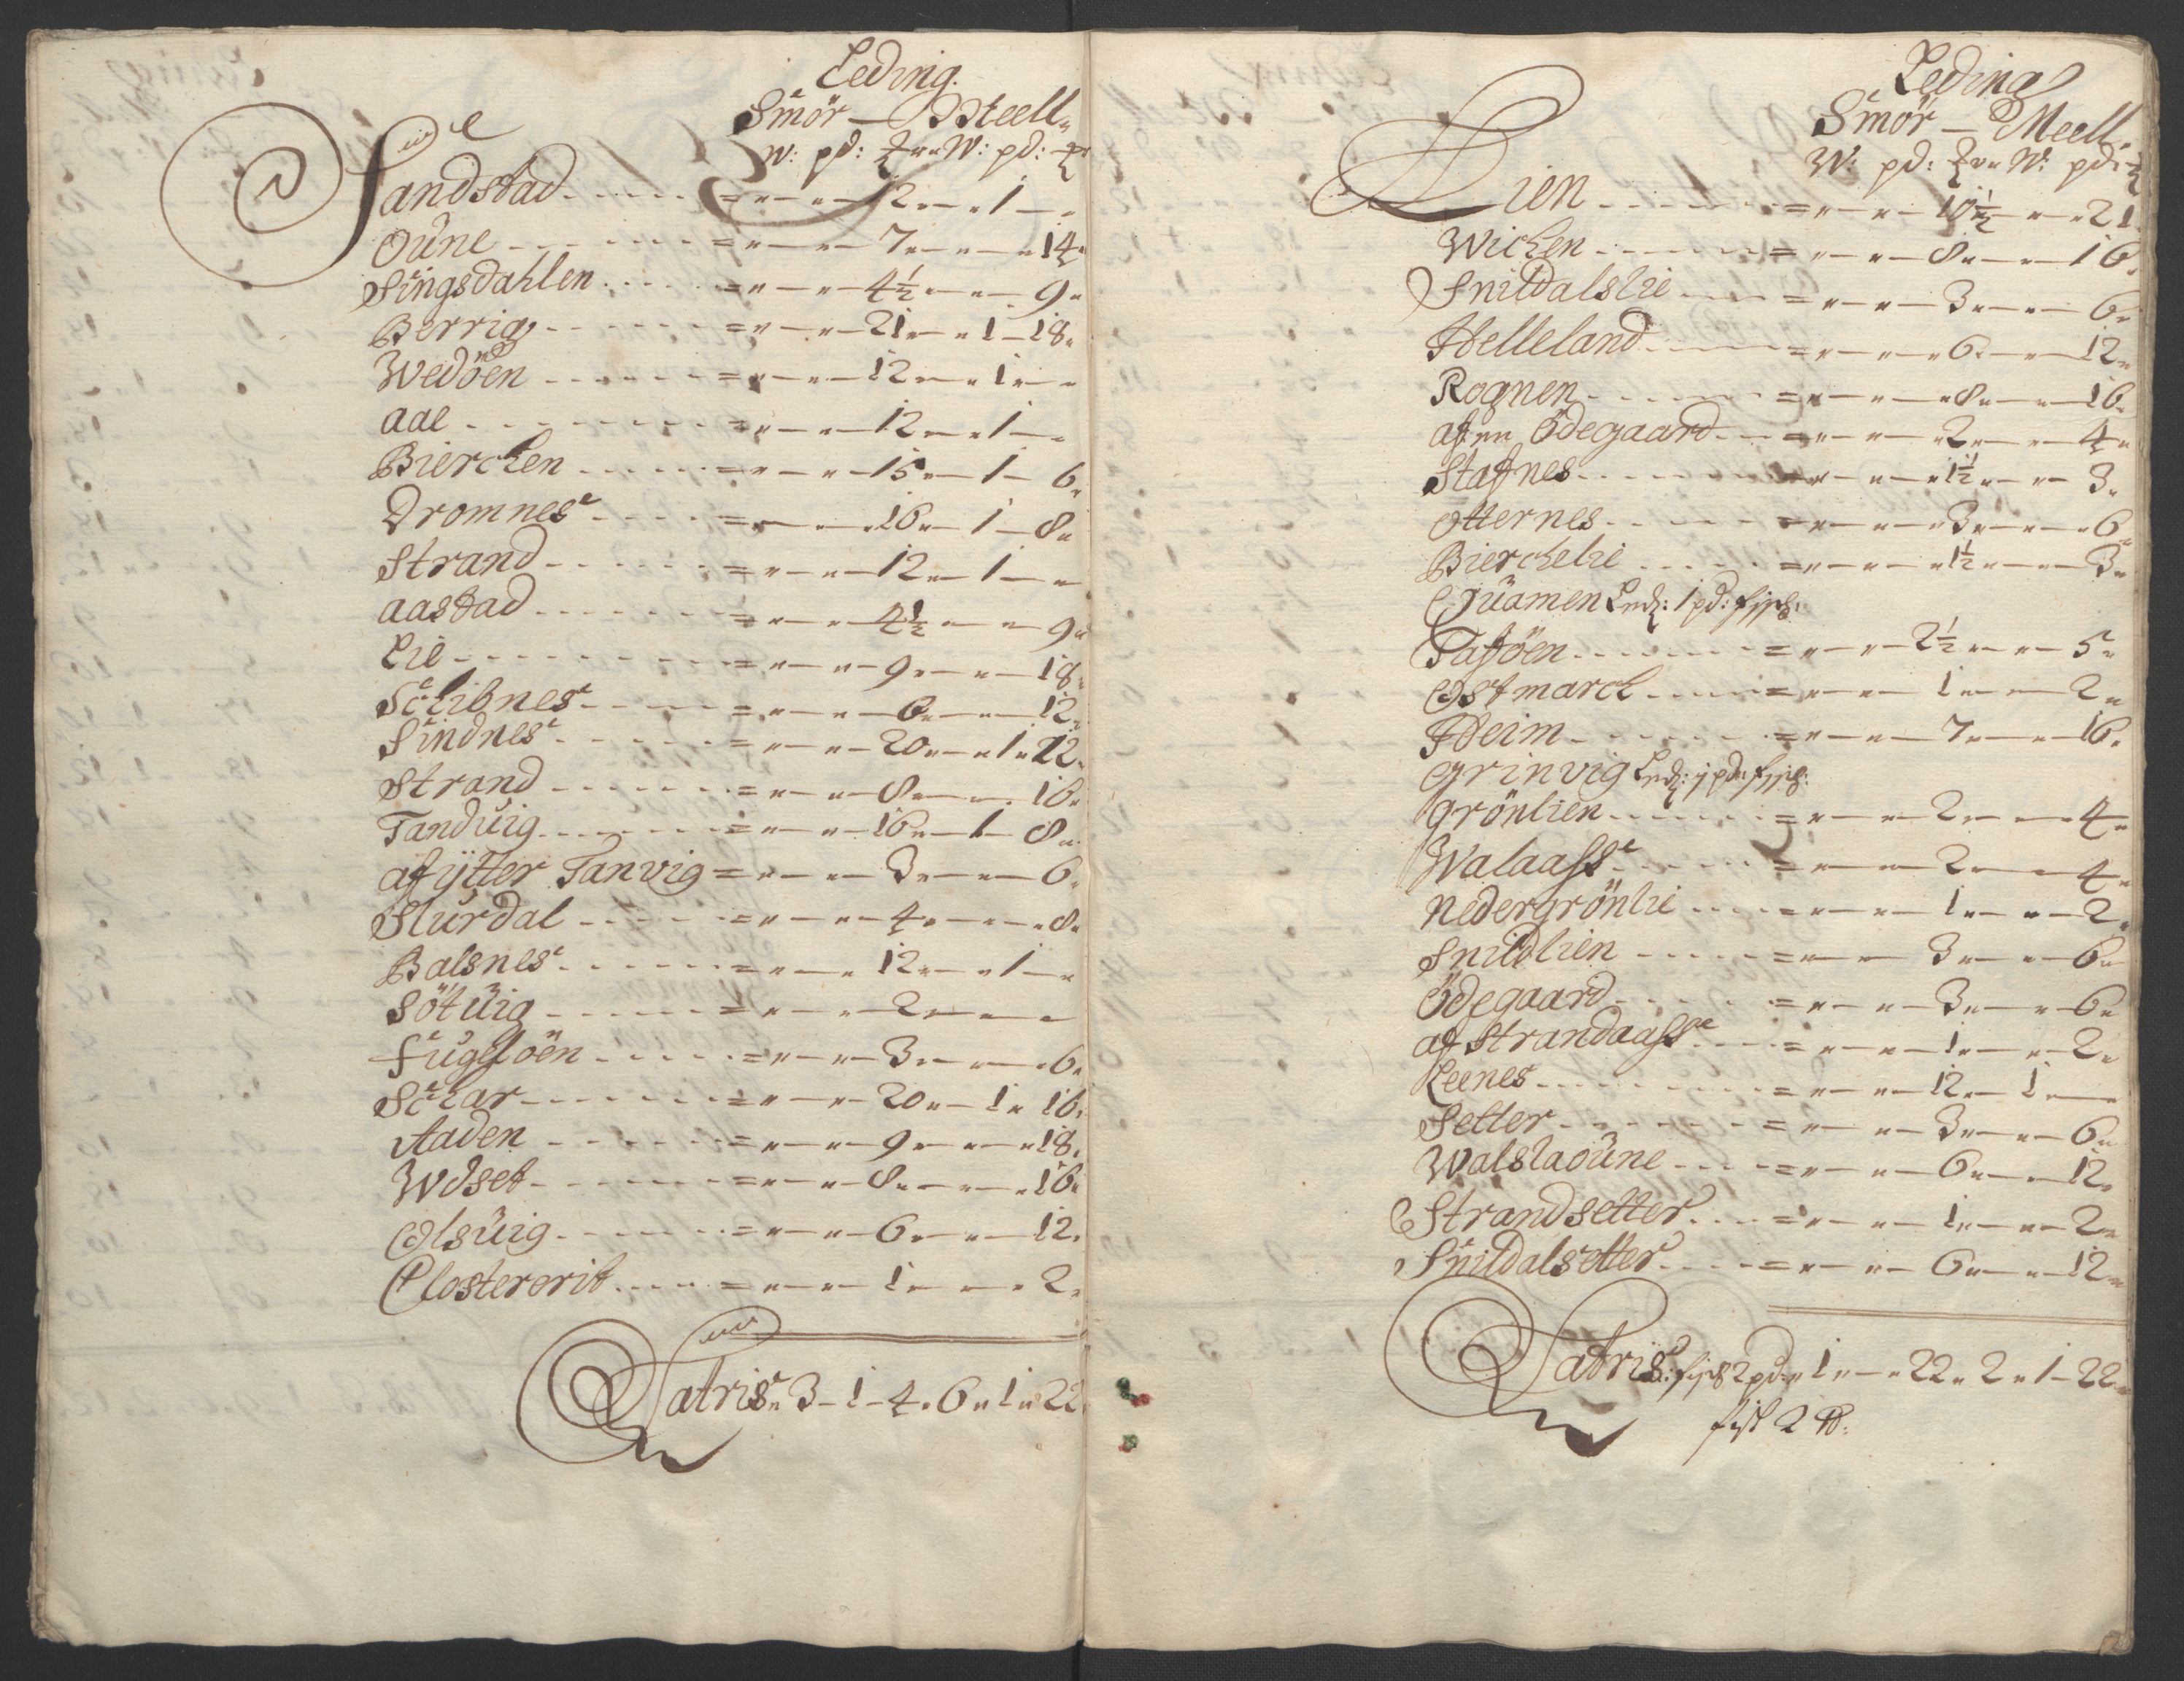 Leding.
Smör — Meell
W: pd: ℔ W: pd: ℔
Sandstad - - - - - = " — " — 12 " — " 1 — "
Oune - - - - - = " — " — 7 " — " — " 14 "
Singsdahlen - - - - = " — " — 4½ " — " — 9 "
Berrig - - - - - = " — " — 21 " — " 1 — 18 "
Wedöen - - - - - = " — " — 12 " — " 1 " — "
Aae - - - - - = " — " — 12 " — " 1 — "
Bierchen - - - - = " — " — 15 " — 1 — 6 "
Dromnes - - - - = " — " — 16 " — 1 — 8 "
Strand - - - - = " — " — 12 " — 1 — "
Aastad - - - - = " — " — 4½ " — " — 9 "
Lie - - - - - = " — " — 9 " — " — 18 "
Schibnes - - - - = " — " — 6 " — " — 12 "
Sindnes - - - - = " — " — 20 " — " 1 " 12 "
Strand - - - - = " — " — 8 " — " 16 "
Tanduig - - - - = " — " — 16 " — 1 — 8 "
af ÿtter Tanvig = " — " — 3 " — " — 6 "
Slurdal - - - - = " — " — 4 " — " — " 8 "
Balsnes - - - - = " — " 12 " — " 1 — "
Sötuig - - - - = " — " — 2 " — " — "
Fugeløen - - - - = " — " — 3 " — " — 6 "
Schar - - - - = " — " — 20 " — 1 " 16 "
Aaden - - - - = " — " — 9 " — " — " 18 "
Wdset - - - - = " — " — 8 " — " — " 16 "
Olsuig - - - - = " — " — 6 " — " — 12 "
Closterorit - - - - = " — " — 1 " — " " 2 "
Latris " 3 — 1 — 4 " 6 " 1 " 22
Leding
Smör — Meell
W: pd: ℔ W: pd: ℔
Lien - - - - - = " — " — 10½ " — " 21
Wichen - - - - = " — " — 8 " — " — 16 "
Snildalslie - - - = " — " — 3 " — " — 6 "
Helleland - - - = " — " — " 6 " — " — 12 "
Rognen - - - - = " — " — " 8 " — " — 16 "
af en Ödegaard - - = " — " — " 2 " — " — 4 "
Stafnes - - - - = " — " — " 1½ " — " — 3 "
Otternes - - - - = " — " — " 3 " — " — " 6 "
Bierchelie - - - = " — " — " 1½ " — " — 3 "
Quamen Ledg: 1 pd: fisch:
Taføen - - - - = " — " — 2½ " — " — 5 "
Ostmarch - - - = " — " — 1 " — " — 2 "
Heim - - - - = " — " — 7 " — " — 16 "
Grinvig Ledg: 1 pd: fisch:
Grönlien - - - = " — " — 2 " — " — 4 "
Walaass - - - = " — " — 2 " — " — 4 "
Nedergrönlie - - - = " — " — 1 " — " — 2 "
Snildlien - - - = " — " — 3 " — " — 6 "
Ödegaard - - - = " — " — 3 " — " — 6 "
af Strandaass - - - = " — " — 1 " — " — 2 "
Leenes - - - - = " — " — 12 " — 1 " — "
Setter - - - - = " — " — 3 " — " — 6 "
Walslaoune - - - = " — " — 6 " — " — 12 "
Strandsetter - - - = " — " — 1 " — " — 2 "
Snildalsetter - - - = " — " — 6 " — " — 12 "
Latris: fisch 2 pd " 1 " — " 22 " 2 " 1 — 22 "
fisk 2 ℔: